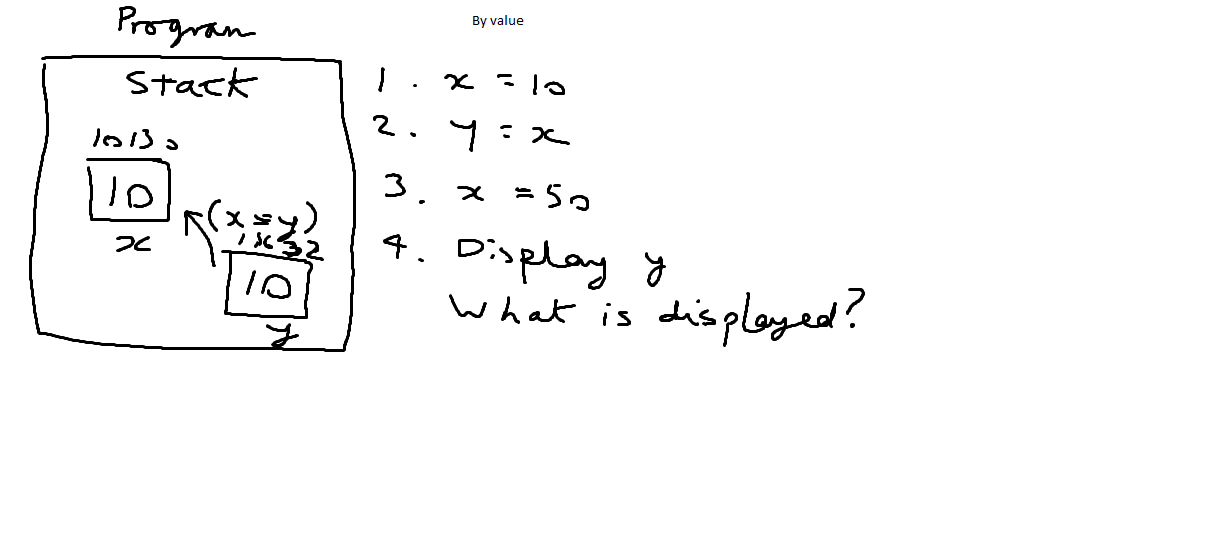 Program
By value
Stack
10130
10
x
(x = y)
10
y
1. x = 10
2. y = x
3. x = 50
4. Display y
What is displayed?